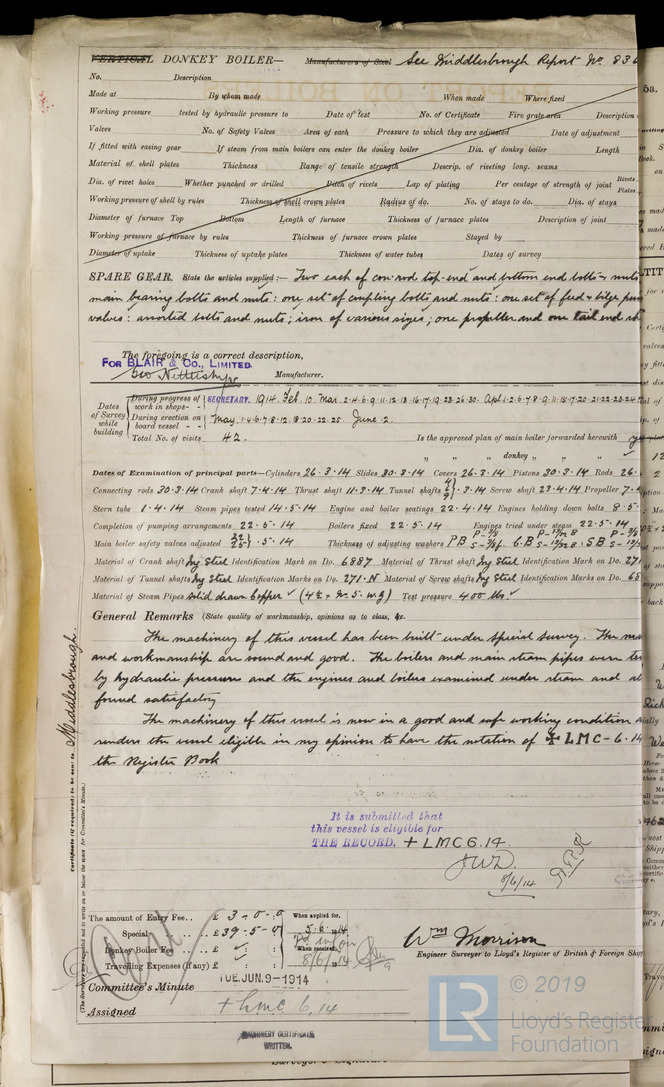 VERTICAL DONKEY BOILER— Manufacturers of Steel See Middlesbrough Report No 836
No. Description
Made at By whom made When made Where fixed
Working pressure tested by hydraulic pressure to Date of test No. of Certificate Fire grate area Description
Valves No. of Safety Valves Area of each Pressure to which they are adjusted Date of adjustment
If fitted with easing gear If steam from main boilers can enter the donkey boiler Dia. of donkey boiler Length
Material of shell plates Thickness Range of tensile strength Descrip. of riveting long. seams
Dia. of rivet holes Whether punched or drilled Pitch of rivets Lap of plating Per centage of strength of joint Rivets Plates
Working pressure of shell by rules Thickness of shell crown plates Radius of do. No. of stays to do. Dia. of stays
Diameter of furnace Top Bottom Length of furnace Thickness of furnace plates Description of joint
Working pressure of furnace by rules Thickness of furnace crown plates Stayed by
Diameter of uptake Thickness of uptake plates Thickness of water tubes Dates of survey
SPARE GEAR. State the articles supplied:— Two each of con-rod top-end and bottom end bolts & nuts
main bearing bolts and nuts: one set of coupling bolts and nuts: one set of feed & bilge pump
valves: assorted bolts and nuts; iron of various sizes; one propeller and one tail end
The foregoing is a correct description,
FOR BLAIR & Co., LIMITED.
Manufacturer.
SECRETARY.
Dates of Survey while building
During progress of work in shops - - 1914 Feb. 10. Mar. 2.4.6.9.11.13.16.17.19.23.26.30. Apl 1.2.6.7.8.9.11.15.17.20.21.22.23.24
During erection on board vessel - - May. 1.4.6.7.8.12.18.20.22.25. June 2.
Total No. of visits 42. Is the approved plan of main boiler forwarded herewith
" " donkey " " "
Dates of Examination of principal parts—Cylinders 26.3.14 Slides 30.3.14 Covers 26.3.14 Pistons 30.3.14 Rods 26.
Connecting rods 30.3.14 Crank shaft 7.4.14 Thrust shaft 11.3.14 Tunnel shafts 4/9.3.14 Screw shaft 23.4.14 Propeller 7.4
Stern tube 1.4.14 Steam pipes tested 14.5.14 Engine and boiler seatings 22.4.14 Engines holding down bolts 8.5
Completion of pumping arrangements 22.5.14 Boilers fixed 22.5.14 Engines tried under steam 22.5.14
Main boiler safety valves adjusted 22/25.5.14 Thickness of adjusting washers
Material of Crank shaft Ing Steel Identification Mark on Do. 6887 Material of Thrust shaft Ing Steel Identification Mark on Do. 271
Material of Tunnel shafts Ing Steel Identification Marks on Do. 271.N Material of Screw shafts Ing Steel Identification Marks on Do.
Material of Steam Pipes Solid drawn Copper (4½ × No 5. w.g) Test pressure 400 lbs.
General Remarks (State quality of workmanship, opinions as to class, &c.
The machinery of this vessel has been built under special survey. The
and workmanship are sound and good. The boilers and main steam pipes were
by hydraulic pressure and the engines and boilers examined under steam and
found satisfactory
The machinery of this vessel is now in a good and safe working condition
renders the vessel eligible in my opinion to have the notation of + LMC-6.14
the Register Book
Certificate (if required) to be sent to Middlesbrough.
(The Surveyors are requested not to write on or below the space for Committee's Minute.)
It is submitted that
this vessel is eligible for
THE RECORD. + LMC 6.14.
8/6/14
The amount of Entry Fee.. £ 3-0-0 When applied for,
Special .. .. £ 39-5-0 5.6.1914
Donkey Boiler Fee .. .. £ : : When received,
Travelling Expenses (if any) £ : : 8/6/14
Wm Morrison
Engineer Surveyor to Lloyd's Register of British & Foreign Shipp
Committee's Minute TUE. JUN. 9-1914
Assigned + LMC 6.14
MACHINERY CERTIFICATE
WRITTEN.
© 2019
LR
Lloyd's Register
Foundation